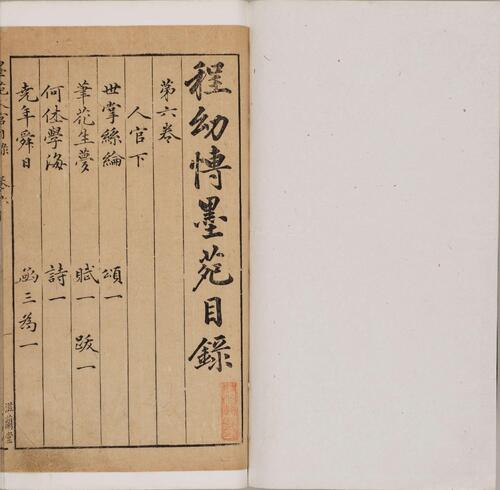 程幼愽墨苑目錄
第六卷
人官下
世掌絲綸 頌一
筆花生夢 賦一 跋一
何休學海 詩一
堯年舜日 函三為一
滋蘭堂